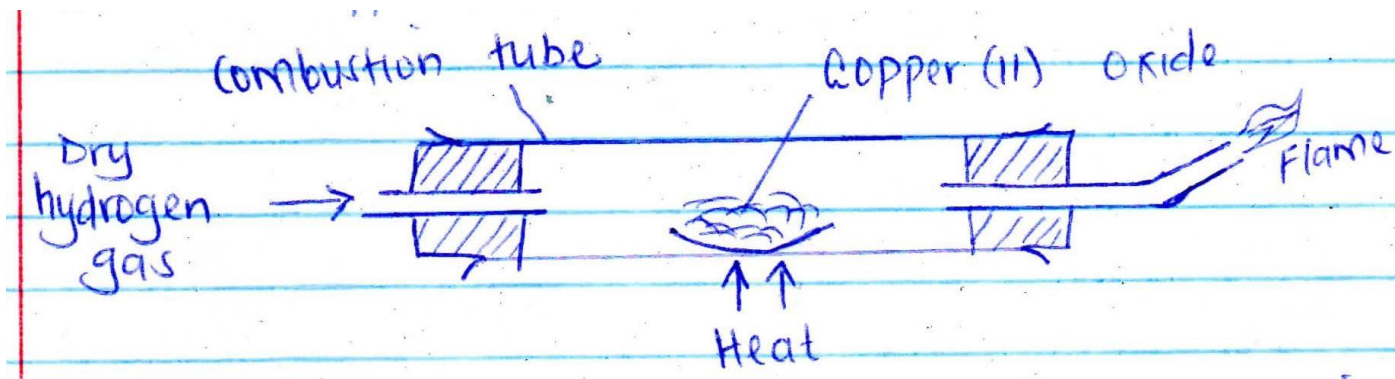 Combustion tube
Copper (11) Oxide
Dry
hydrogen
gas
Flame
Heat